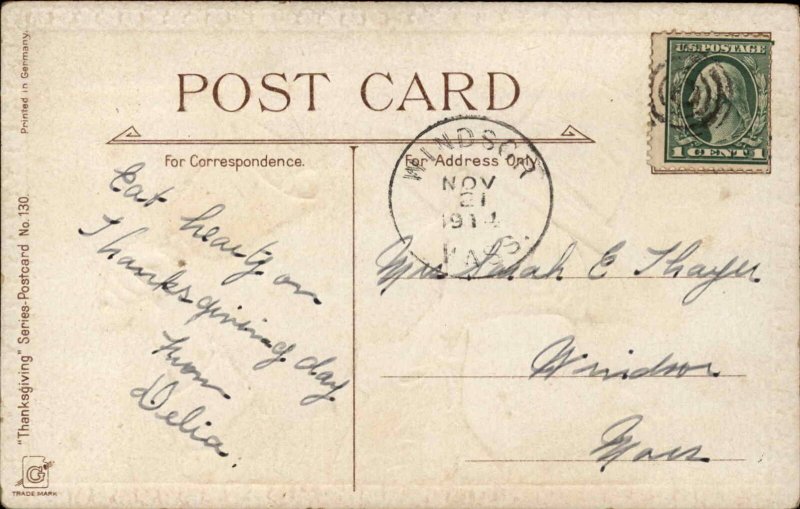 POST CARD
For Correspondence.
For Address Only.
U.S. POSTAGE
1 CENT 1
WINDSOR
NOV
21
1914
MASS.
Eat hearty on
Thanksgiving day
from
Delia.
Mrs Sarah E Thayer
Windsor
Mass
Printed in Germany.
"Thanksgiving" Series-Postcard No. 130.
G
TRADE MARK